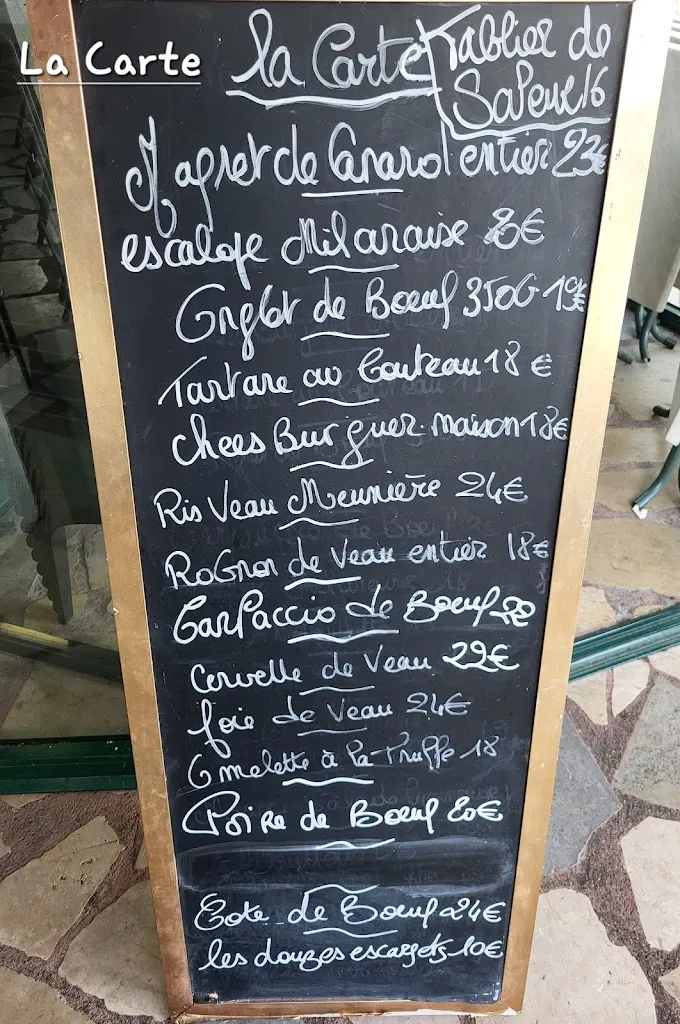 La Carte
la Carte
Tablier de
Sapeur 16
Magret de Canard entier 23€
escalope Milanaise €
Onglet de Bœuf 350G 19€
Tartare au Couteau 18 €
chees Burguer maison 18€
Ris Veau Meunière 24€
RoGnon de Veau entier 18€
CarPaccio de Bœuf
Cervelle de Veau 22€
foie de Veau 24€
Omelette à la Truffe 18
Poire de Bœuf 20€
Cote de Bœuf 24€
les douzes escargots 10€